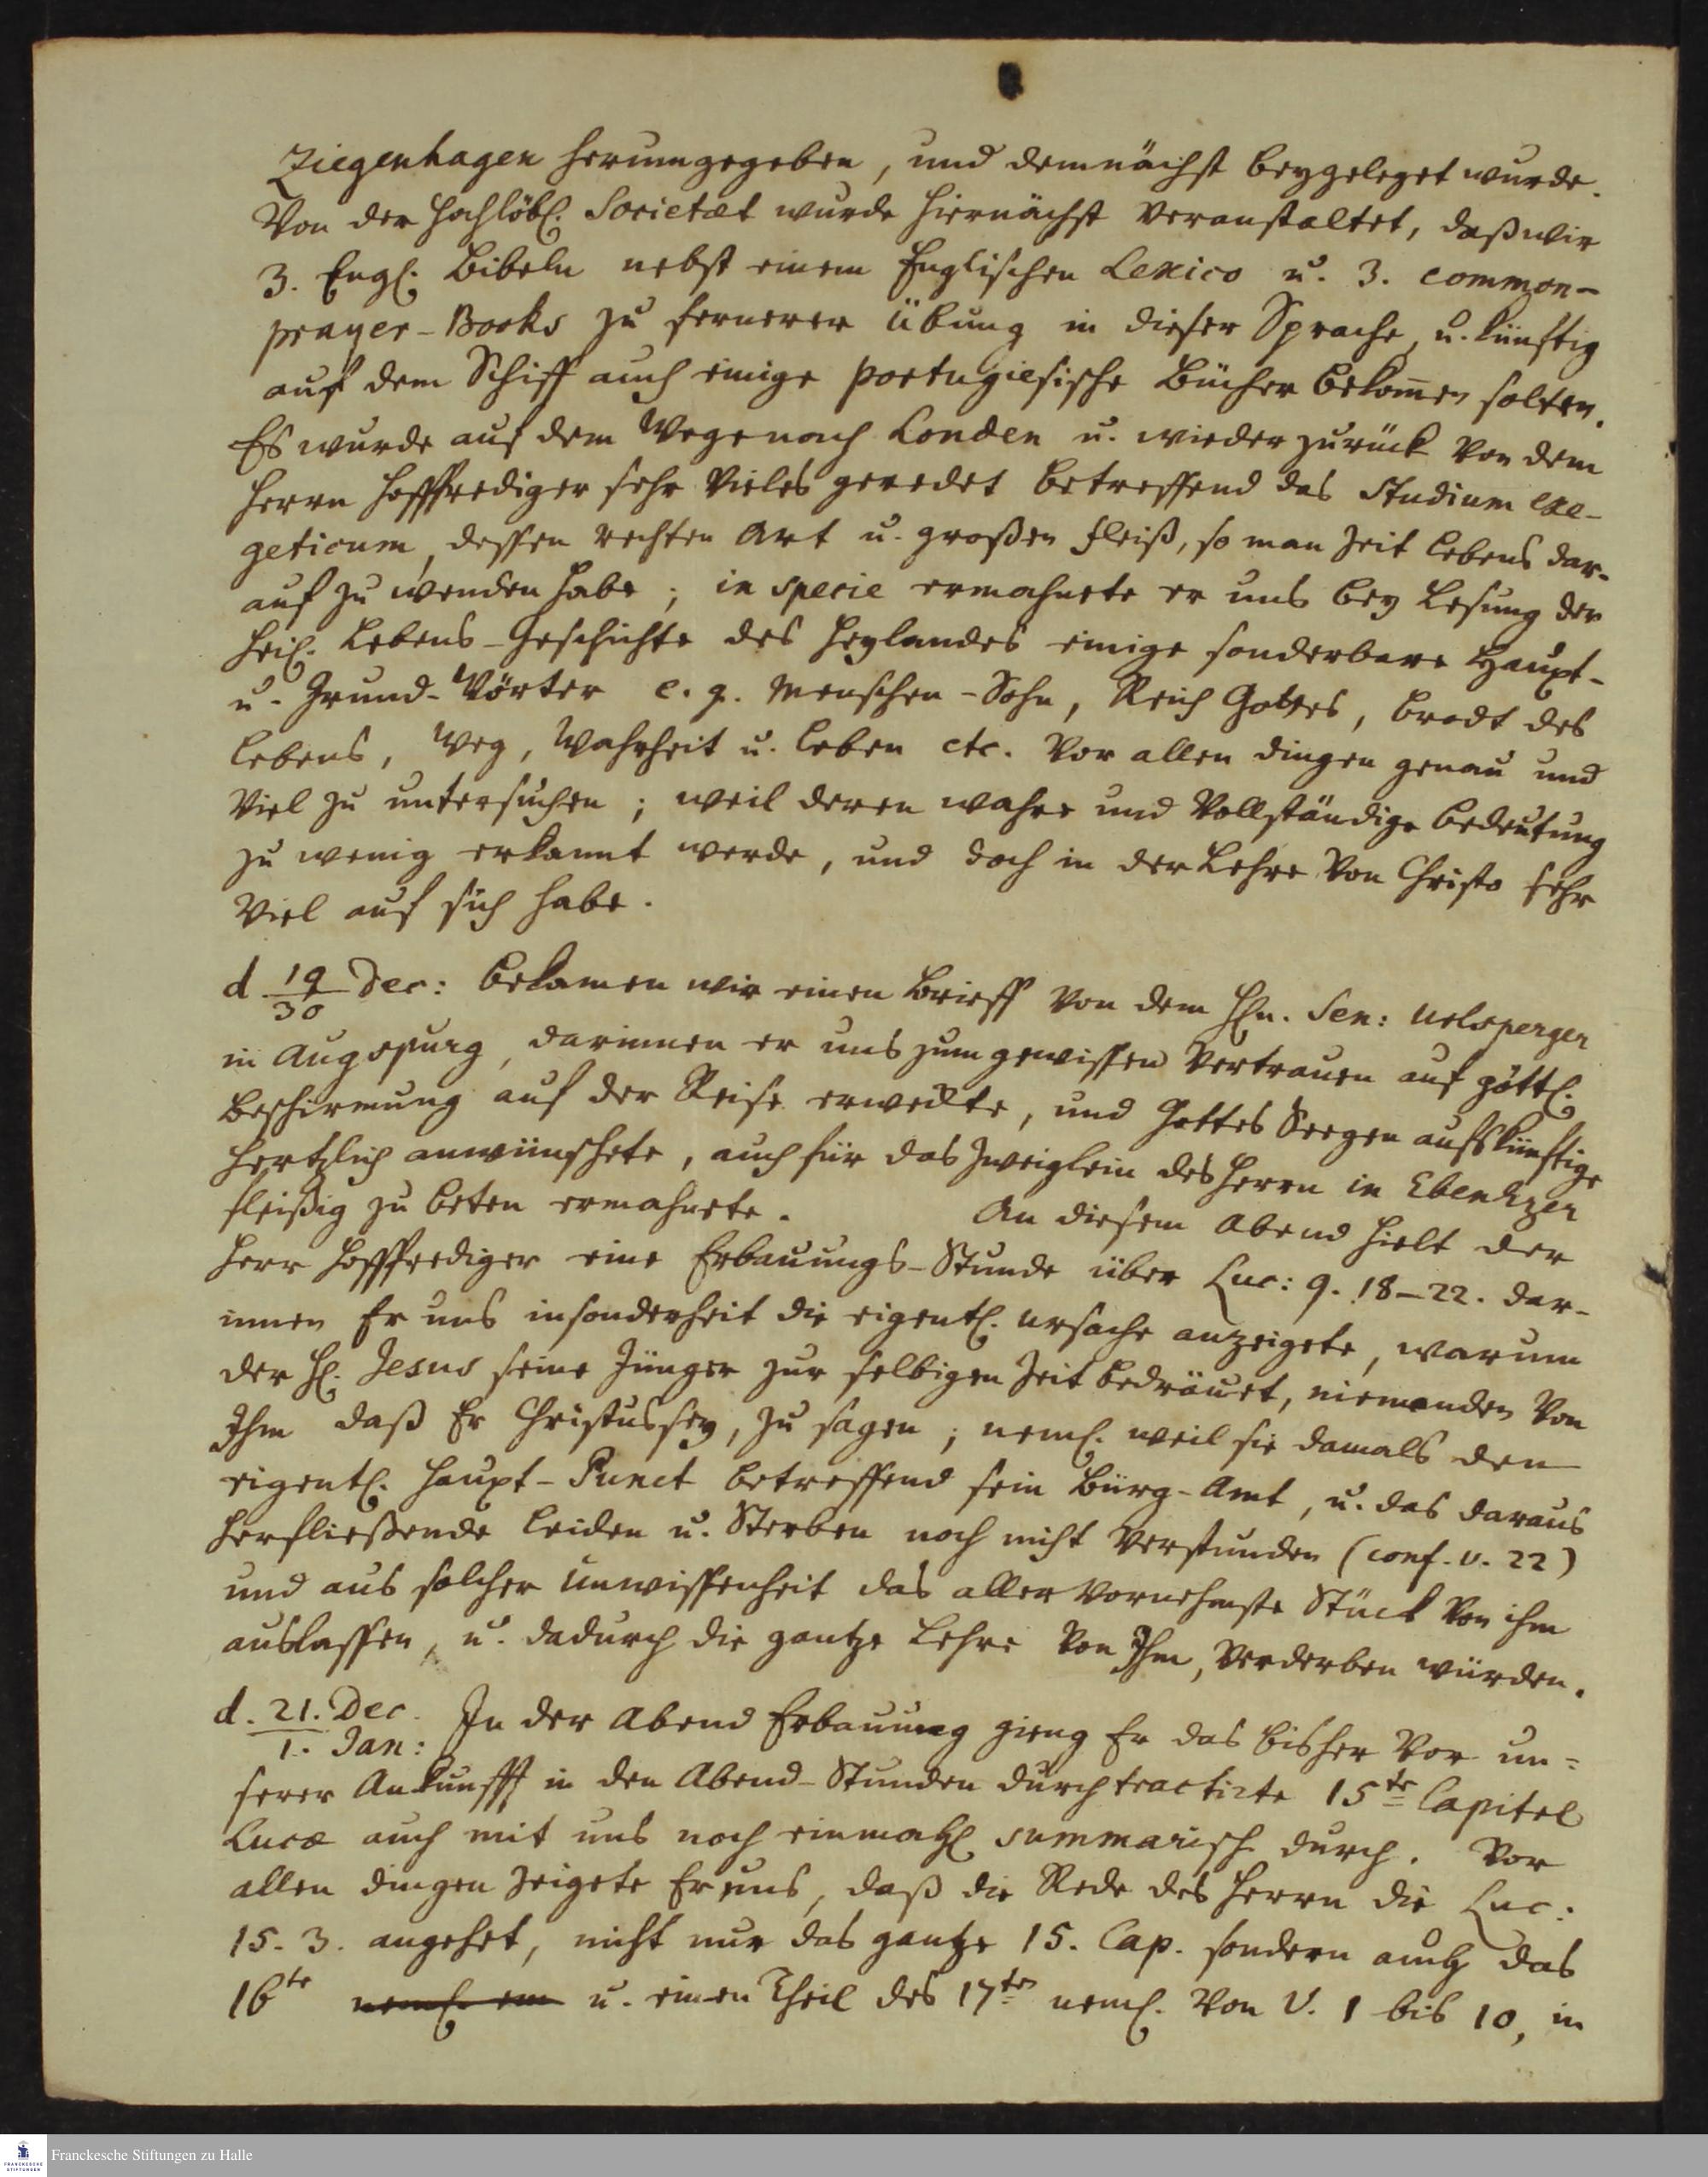 Ziegenhagen herumgegeben, und demnächst beygeleget wurde.
Von der Hochlöbl. Societæt wurde hiernächst veranstaltet, daß wir
3. Engl. Bibeln nebst einem Englischen Lexico u. 3. common-
prayer-Books zu fernerer Übung in dieser Sprache, u. künftig
auf dem Schiff auch einige portugiesische Bücher bekom̅en solten.
Es wurde auf dem Wege nach Londen u. wieder zurück von dem
Herrn Hoffprediger sehr vieles geredet betreffend das Studium exe-
geticum, dessen rechten Art u. großen Fleiß, so man Zeit Lebens dar-
auf zu wenden habe; in specie ermahnete er uns bey Lesung der
heil. Lebens-Geschichte des Heylandes einige sonderbare Haupt-
u. Grund-Wörter e. g. Menschen-Sohn, Reich Gottes, Brodt des
Lebens, Weg, Wahrheit u. Leben etc. vor allen Dingen genau und
viel zu untersuchen; weil deren wahre und vollständige Bedeutung
zu wenig erkannt werde, und doch in der Lehre von Christo sehr
viel auf sich habe.
d 19/30 Dec: bekamen wir einen Brieff von dem Hln. Sen: Urlsperger
in Augspurg, darinnen er uns zum gewissen Vertrauen auf göttl.
Beschirmung auf der Reise erweckte, und Gottes Seegen aufs künftige
hertzlich anwünschete, auch für das Zweiglein des Herrn in Ebenezer
fleißig zu beten ermahnete. An diesem Abend hielt der
Herr Hoffprediger eine Erbauungs-Stunde über Luc: 9. 18-22. dar-
innen Er uns insonderheit die eigentl. Ursache anzeigete, warum
der Hl. Jesus seine Jünger zur selbigen Zeit bedräuet, niemanden von
Ihm daß Er Christus sey, zu sagen; neml. weil sie damals den
eigentl. Haupt-Punct betreffend sein Bürg-Amt, u. das daraus
herfließende Leiden u. Sterben noch nicht verstunden (conf. v. 22)
und aus solcher Unwissenheit das allervornehmste Stück von ihm
auslassen, u. dadurch die gantze Lehre von Ihm, verderben würden.
d. 21. Dec./1. Jan: In der Abend Erbauung gieng Er das bisher vor un-
serer Ankunfft in den Abend-Stunden durchtractirte 15te Capitel
Lucæ auch mit uns noch einmahl summarisch durch. Vor
allen Dingen zeigete Er uns, daß die Rede des Herrn die Luc:
15. 3. angehet, nicht nur das gantze 15. Cap. sondern auch das
16te neml. ein u. einen Theil des 17ten neml. von V. 1 bis 10, in
Franckesche Stiftungen zu Halle
FRANCKESCHE STIFTUNGEN